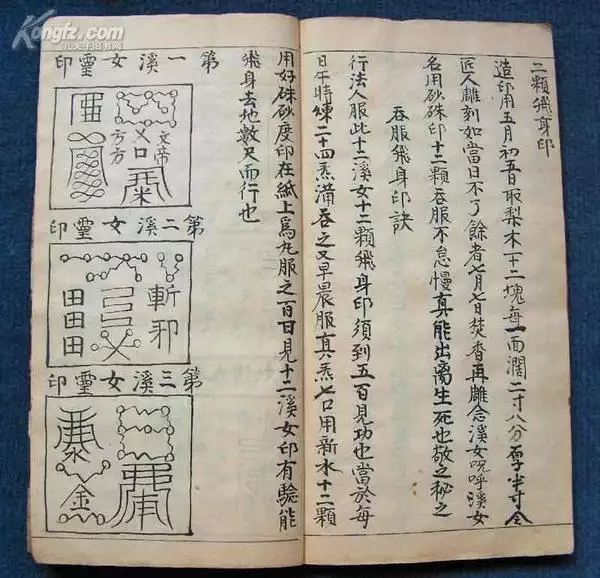 Kongfz.com
孔夫子旧书网
二顆飛身印
造印用五月初五日取梨木十二塊每一面濶二寸八分厚半寸令
匠人雕刻如當日不了餘者七月七日焚香再雕念溪女呪呼溪女
名用砂硃印十二顆吞服不怠慢真能出离生死也敬之秘之
吞服飛身印訣
行法人服此十二溪女十二顆飛身印須到五百見功也當於每
日午時煉二十四炁滿吞之又早晨服真炁七口用新水十二顆
用好硃砂度印在紙上為丸服之百日見十二溪女印有驗能
飛身去地數尺而行也
第一溪女靈印
文帝
方方
第二溪女靈印
斬邪
田田田
第三溪女靈印
金